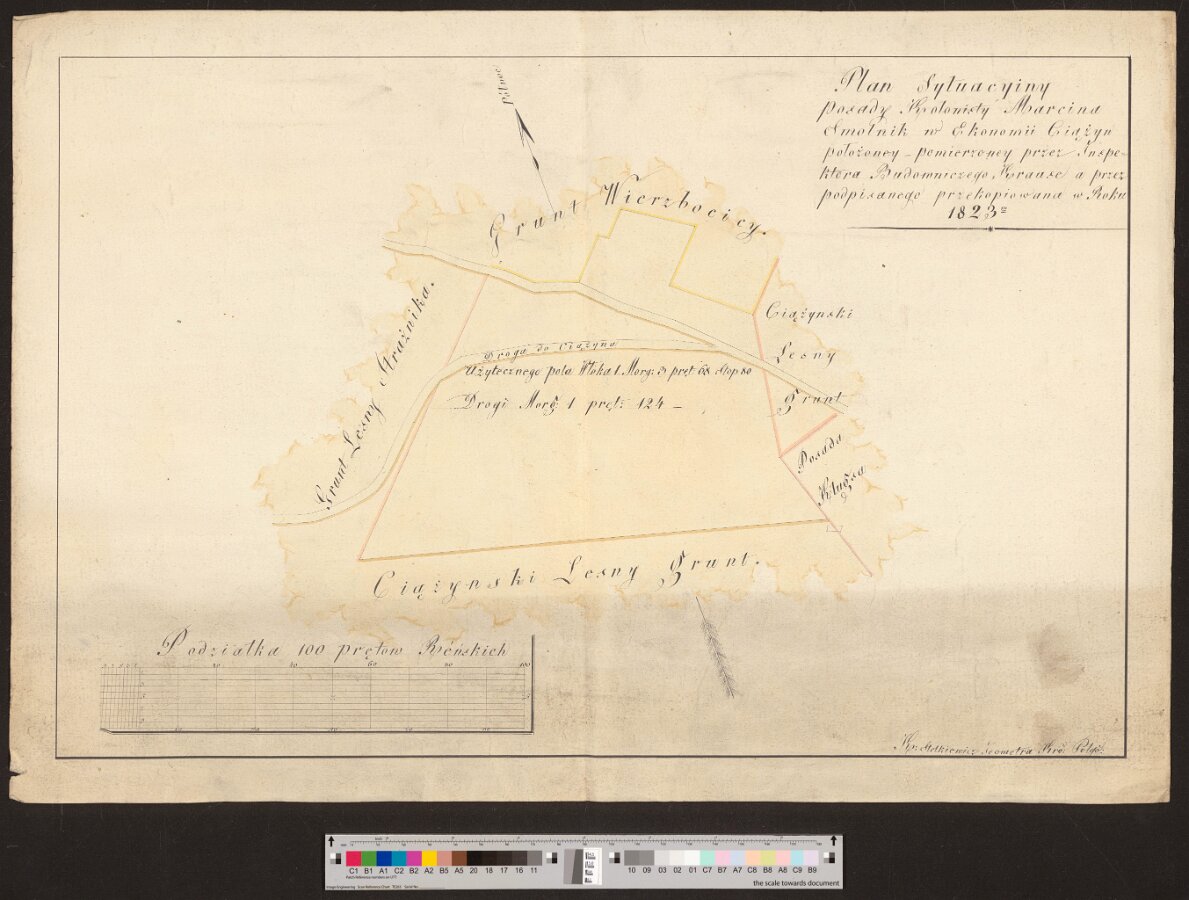 Plan Sytuacyiny
posady Kolonisty Marcina
Smolnik w Ekonomii Ciążyn
położoney - pomierzoney przez Inspe-
ktora Budowniczego Krause a przez
podpisanego przekopiowana w Roku
1823
Północ
Grunt Wierzbocicy.
Grunt Lesny Strażnika.
Ciążynski
Lesny
grunt
Droga do Ciążyna
Użytecznego pola Włoka 1 Morg: 3 pręt 68 stop 80
Drogi Morg: 1 pręt: 124 -
Posada
Kluga
Ciążynski Lesny grunt.
Podziałka 100 prętow Reńskich
20 40 60 80 100
Geometra
C1 B1 A1 C2 B2 A2 B5 A5 20 18 17 16 11
10 09 03 02 01 C7 B7 A7 C8 B8 A8 C9 B9
the scale towards document